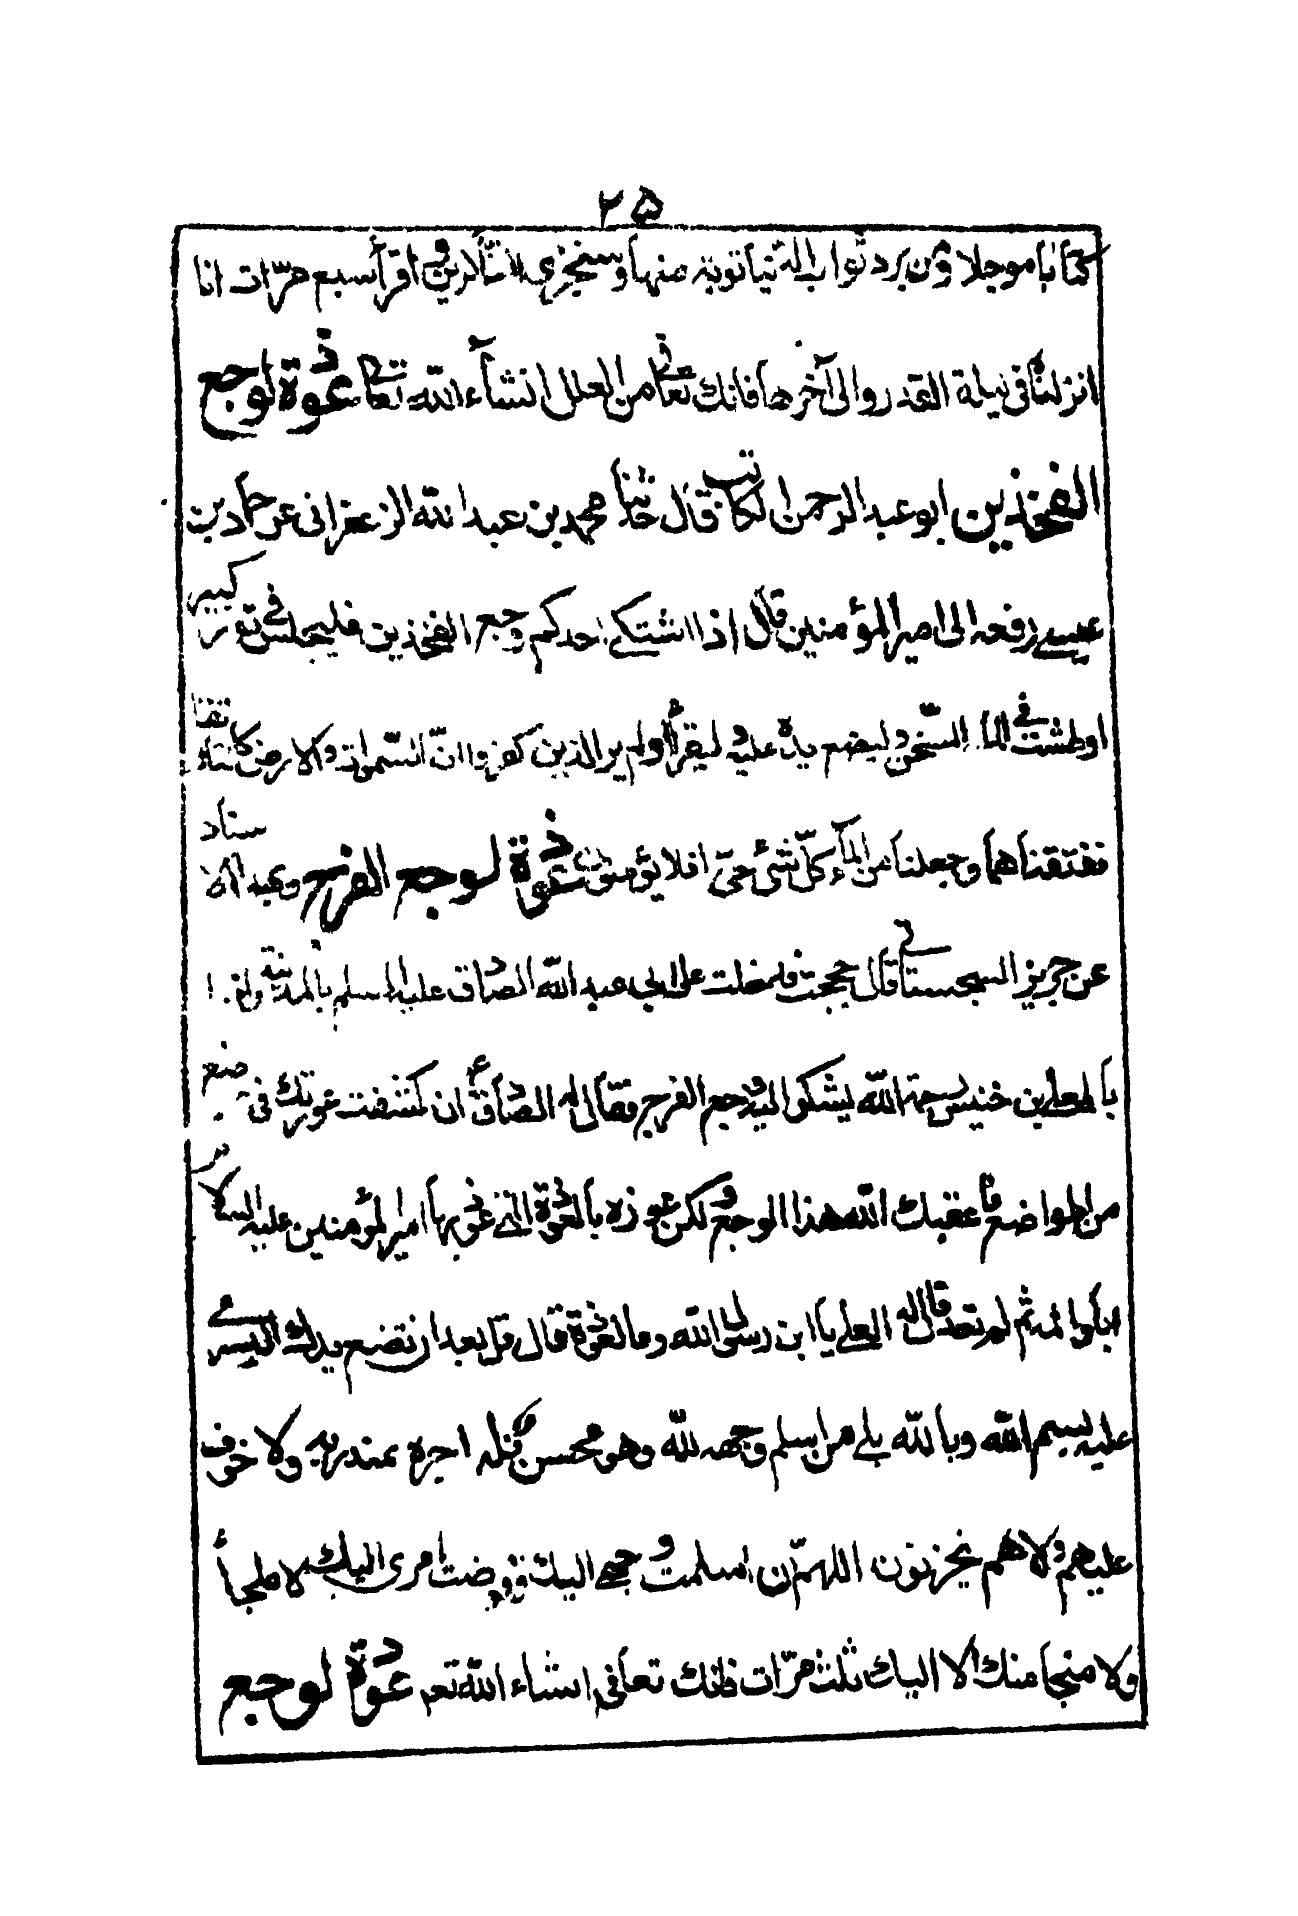 ٢٥
كتابا موجلا ومن يرد ثواب الدنيا نوته منها وسنجزى الشاكرين واقرأ سبع مرات انا
انزلناه في ليلة القدر والى آخرها فانك تعافى من العلل انشاء الله تعالى عوذة لوجع
الفخذين ابو عبد الرحمن الكاتب قال حدثنا محمد بن عبد الله الزعفرانى عن حماد بن
عيسى رفعه الى امير المؤمنين قال اذا اشتكى احدكم وجع الفخذين فليجلس في تور كبير
او طشت في الماء السخن وليضع يده عليه وليقرأ اولم ير الذين كفروا ان السموات والارض كانتا رتقا
ففتقناهما وجعلنا من الماء كل شئ حي افلا يؤمنون عوذة لوجع الفرج وبهذ الا سناد
عن حريز السجستاني قال حججت فدخلت على ابي عبد الله الصادق عليه السلم بالمدينة واذا
بالمعلى بن خنيس رحمة الله يشكوا اليه وجع الفرج فقال له الصادق ع ان كشفت عورتك في موضع
من المواضع فاعقبك الله هذا الوجع ولكن عوذه بالعوذة التي عوذ بها امير المؤمنين عليه السلام
ابا وائلة ثم لم تعد قال له المعلى يا ابن رسول الله وما العوذة قال قل بعد ان تضع يدك اليسرى
عليه بسم الله وبالله بلى من اسلم وجهه لله وهو محسن فله اجره عند ربه ولا خوف
عليهم ولا هم يحزنون اللهم ان اسلمت وجهي اليك وفوضت امرى اليك لا ملجأ
ولا منجا منك الا اليك ثلث مرات فانك تعافى انشاء الله تعم عوذة لوجع